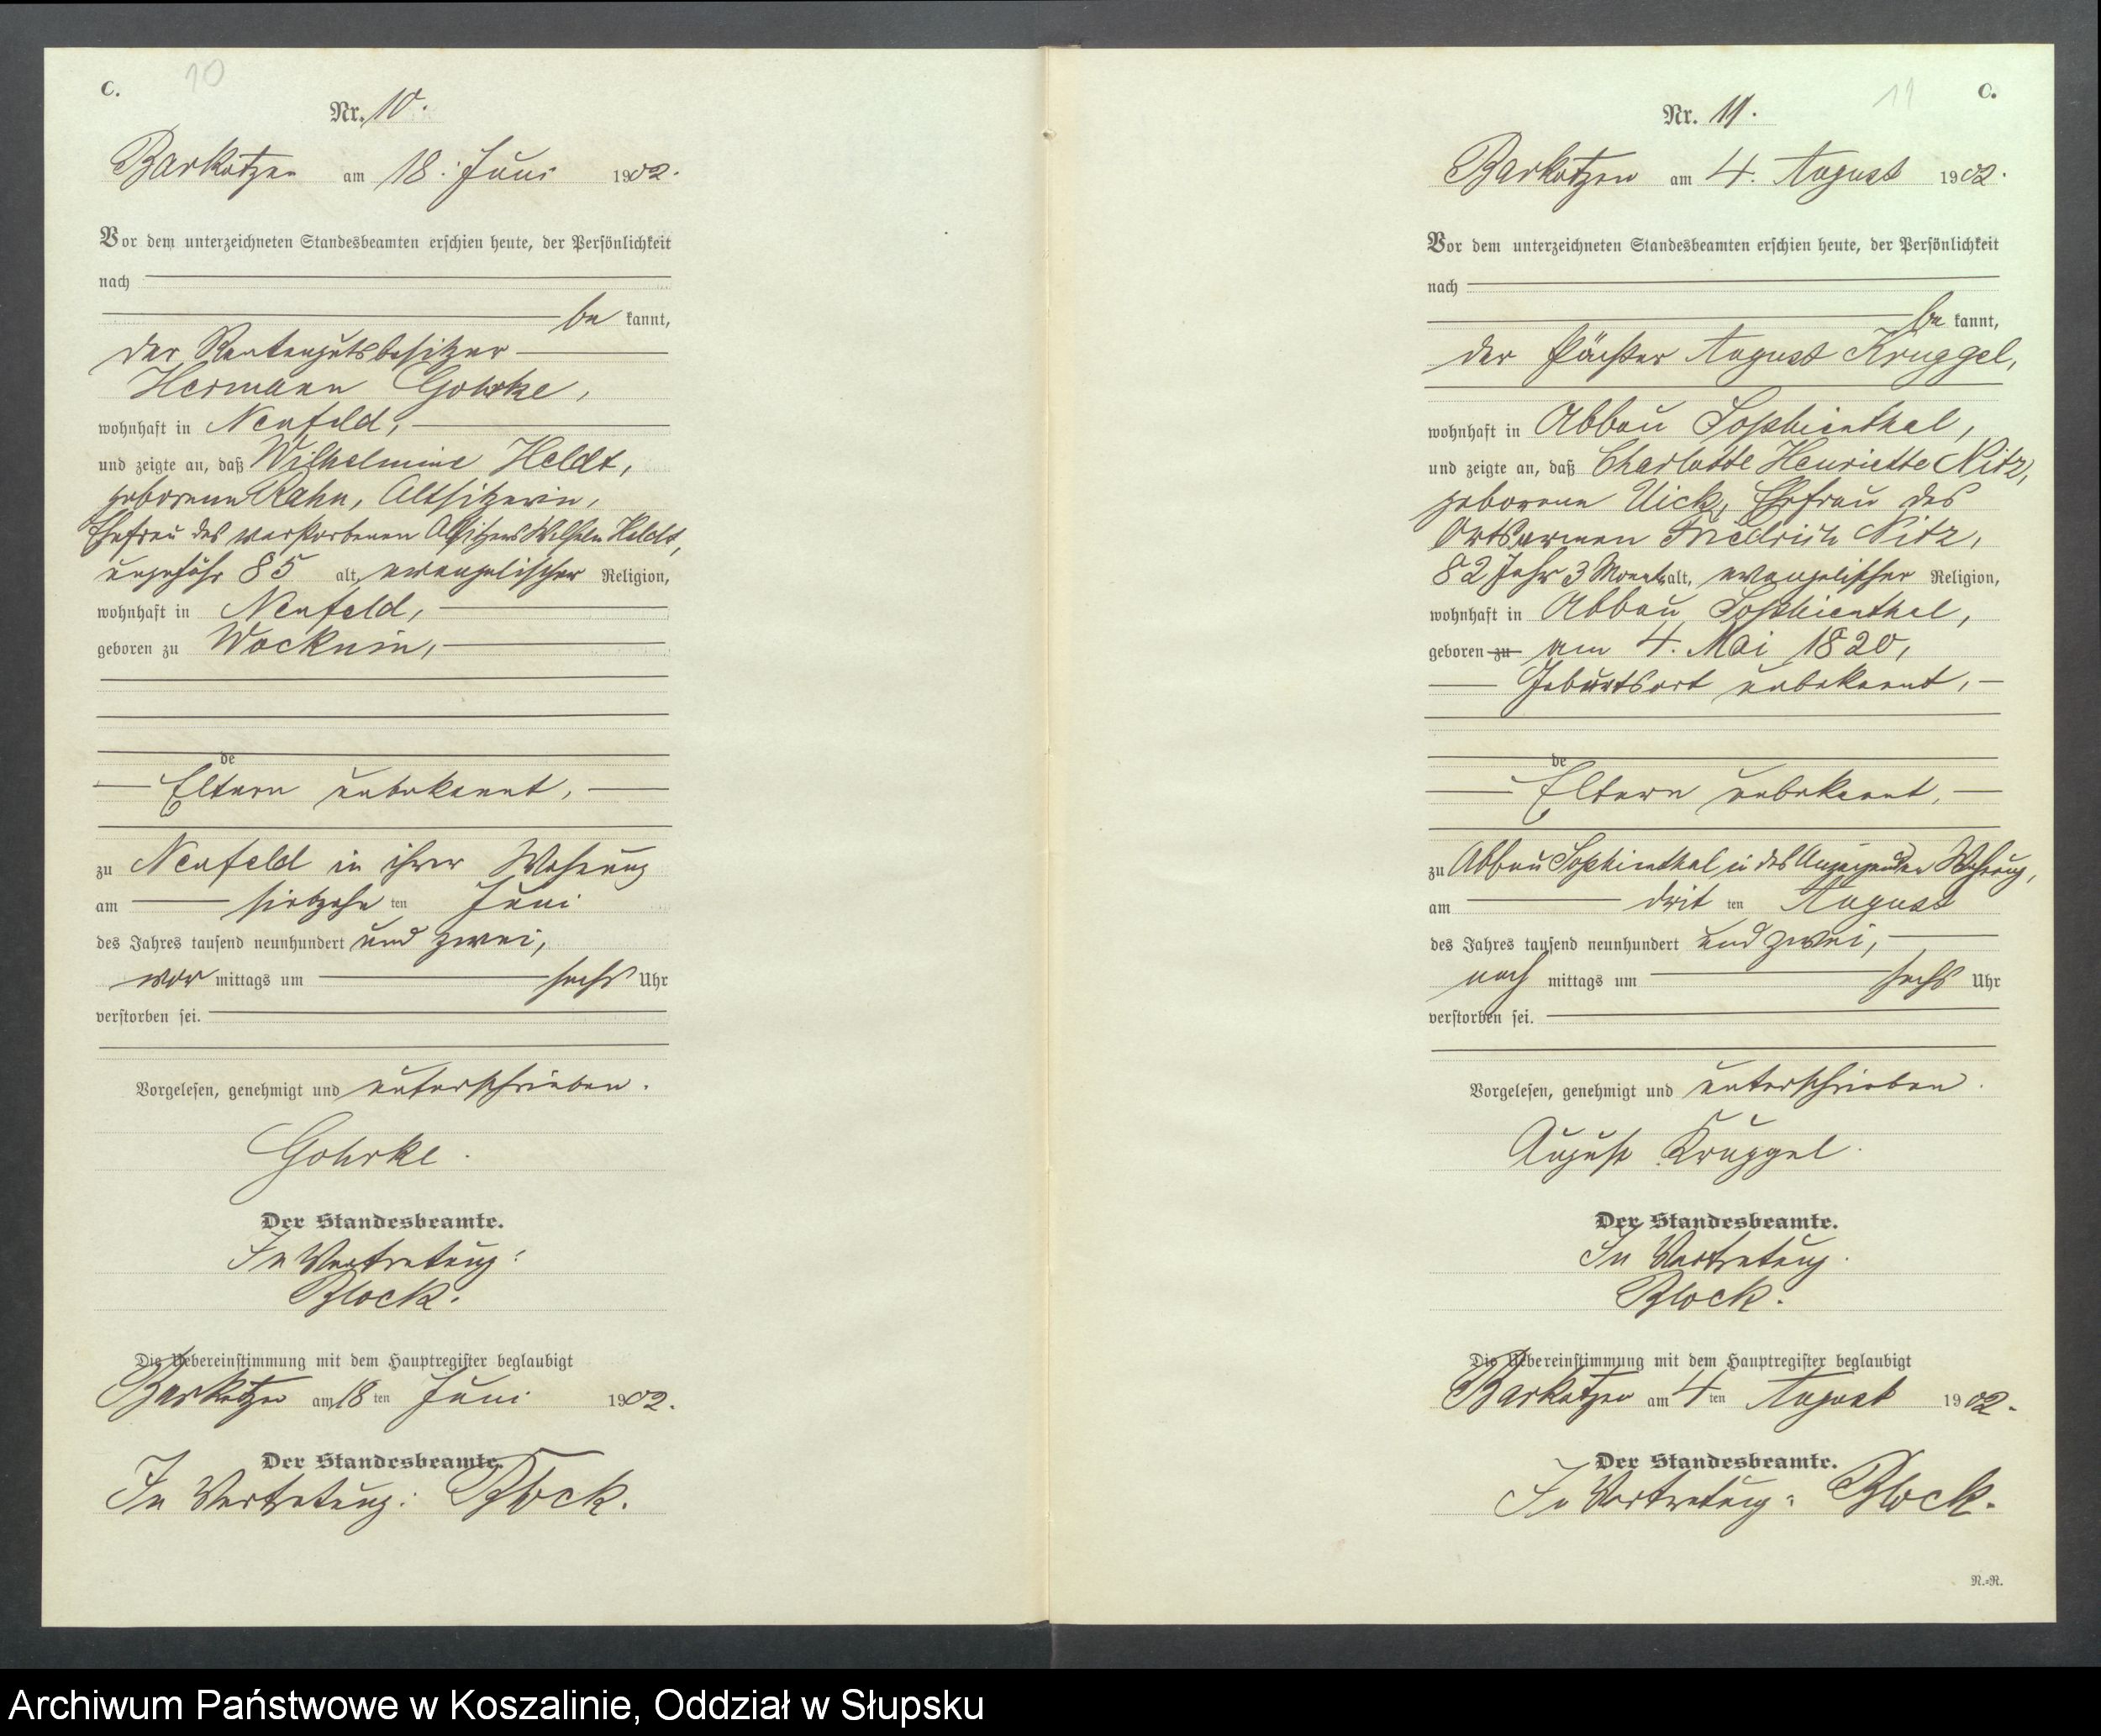 C.
10
Nr. 10.
Barkotzen am 18. Juni 1902.
Vor dem unterzeichneten Standesbeamten erschien heute, der Persönlichkeit
nach
be kannt,
der Rentengutsbesitzer
Hermann Gohrke,
wohnhaft in Neufeld,
und zeigte an, daß Wilhelmine Heldt,
geborene Rahn, Altsitzerin,
Ehefrau des verstorbenen Altsitzers Wilhelm Heldt,
ungefähr 85 alt, evangelischer Religion,
wohnhaft in Neufeld,
geboren zu Wocknin,
de
Eltern unbekannt,
zu Neufeld in ihrer Wohnung
am siebzehn ten Juni
des Jahres tausend neunhundert und zwei,
vor mittags um sechs Uhr
verstorben sei.
Vorgelesen, genehmigt und unterschrieben.
Gohrke.
Der Standesbeamte.
In Vertretung:
Block.
Die Uebereinstimmung mit dem Hauptregister beglaubigt
Barkotzen am 18 ten Juni 1902.
Der Standesbeamte.
In Vertretung: Block.
11
C.
Nr. 11.
Barkotzen am 4. August 1902.
Vor dem unterzeichneten Standesbeamten erschien heute, der Persönlichkeit
nach
be kannt,
der Pächter August Kruggel,
wohnhaft in Abbau Sophienthal,
und zeigte an, daß Charlotte Henriette Nitz,
geborene Uick, Ehefrau des
Ortsarmen Friedrich Nitz,
82 Jahr 3 Monat alt, evangelischer Religion,
wohnhaft in Abbau Sophienthal,
geboren zu am 4. Mai 1820,
Geburtsort unbekannt,
de
Eltern unbekannt,
zu Abbau Sophienthal in des Anzeigenden Wohnung,
am drit ten August
des Jahres tausend neunhundert und zwei,
nach mittags um sechs Uhr
verstorben sei.
Vorgelesen, genehmigt und unterschrieben.
August Kruggel.
Der Standesbeamte.
In Vertretung.
Block.
Die Uebereinstimmung mit dem Hauptregister beglaubigt
Barkotzen am 4 ten August 1902.
Der Standesbeamte.
In Vertretung: Block.
N.=R.
Archiwum Państwowe w Koszalinie, Oddział w Słupsku